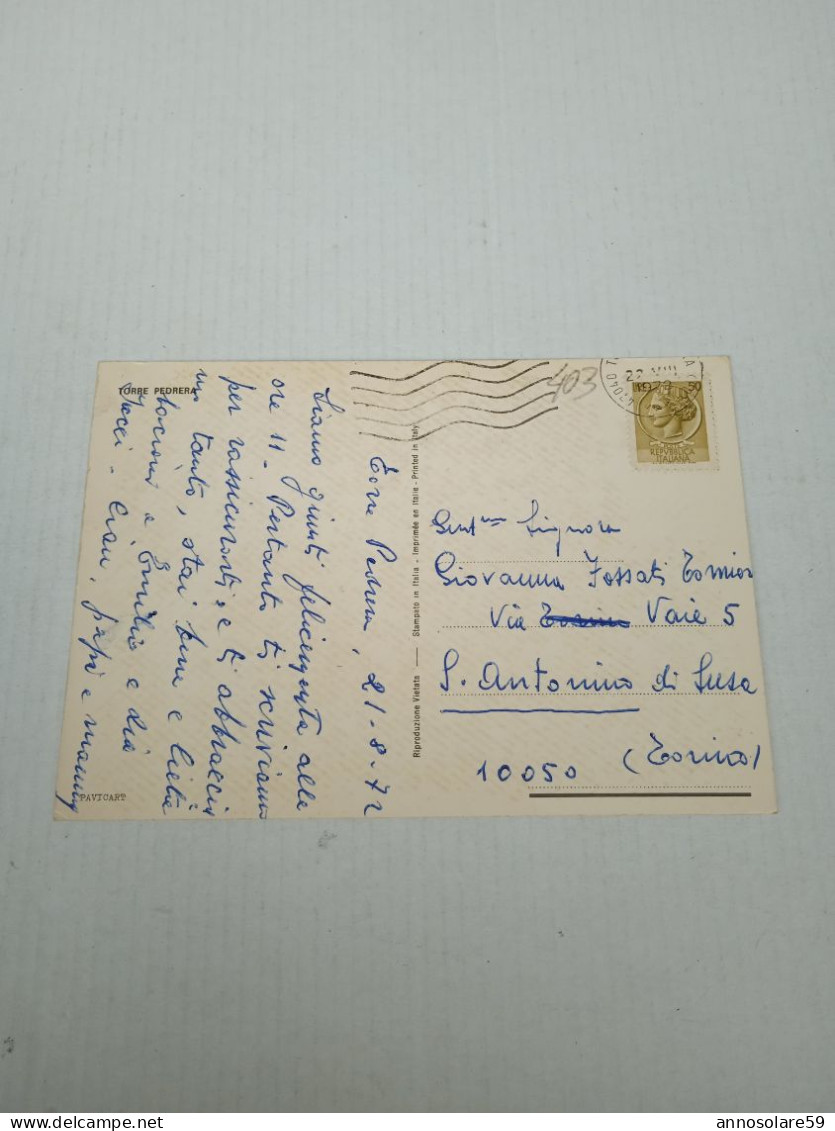 TORRE PEDRERA
Torre Pedrera, 21-8-72
Siamo giunti felicemente alle
ore 11 - Pertanto ti scriviamo
per rassicurarti, e ti abbracciamo
tanto, stai bene e lieta
bacioni a Emilio e zia
Ciao, papi e mamy
PAVICART
Riproduzione Vietata — Stampato in Italia - Imprimée en Italie - Printed in Italy
403
22 VIII
1972
47040
50
REPVBBLICA
ITALIANA
Gent.ma Signora
Giovanna Fossati Tomior
Via Torino Vaie 5
S. Antonino di Susa
10050 (Torino)
annosolare59